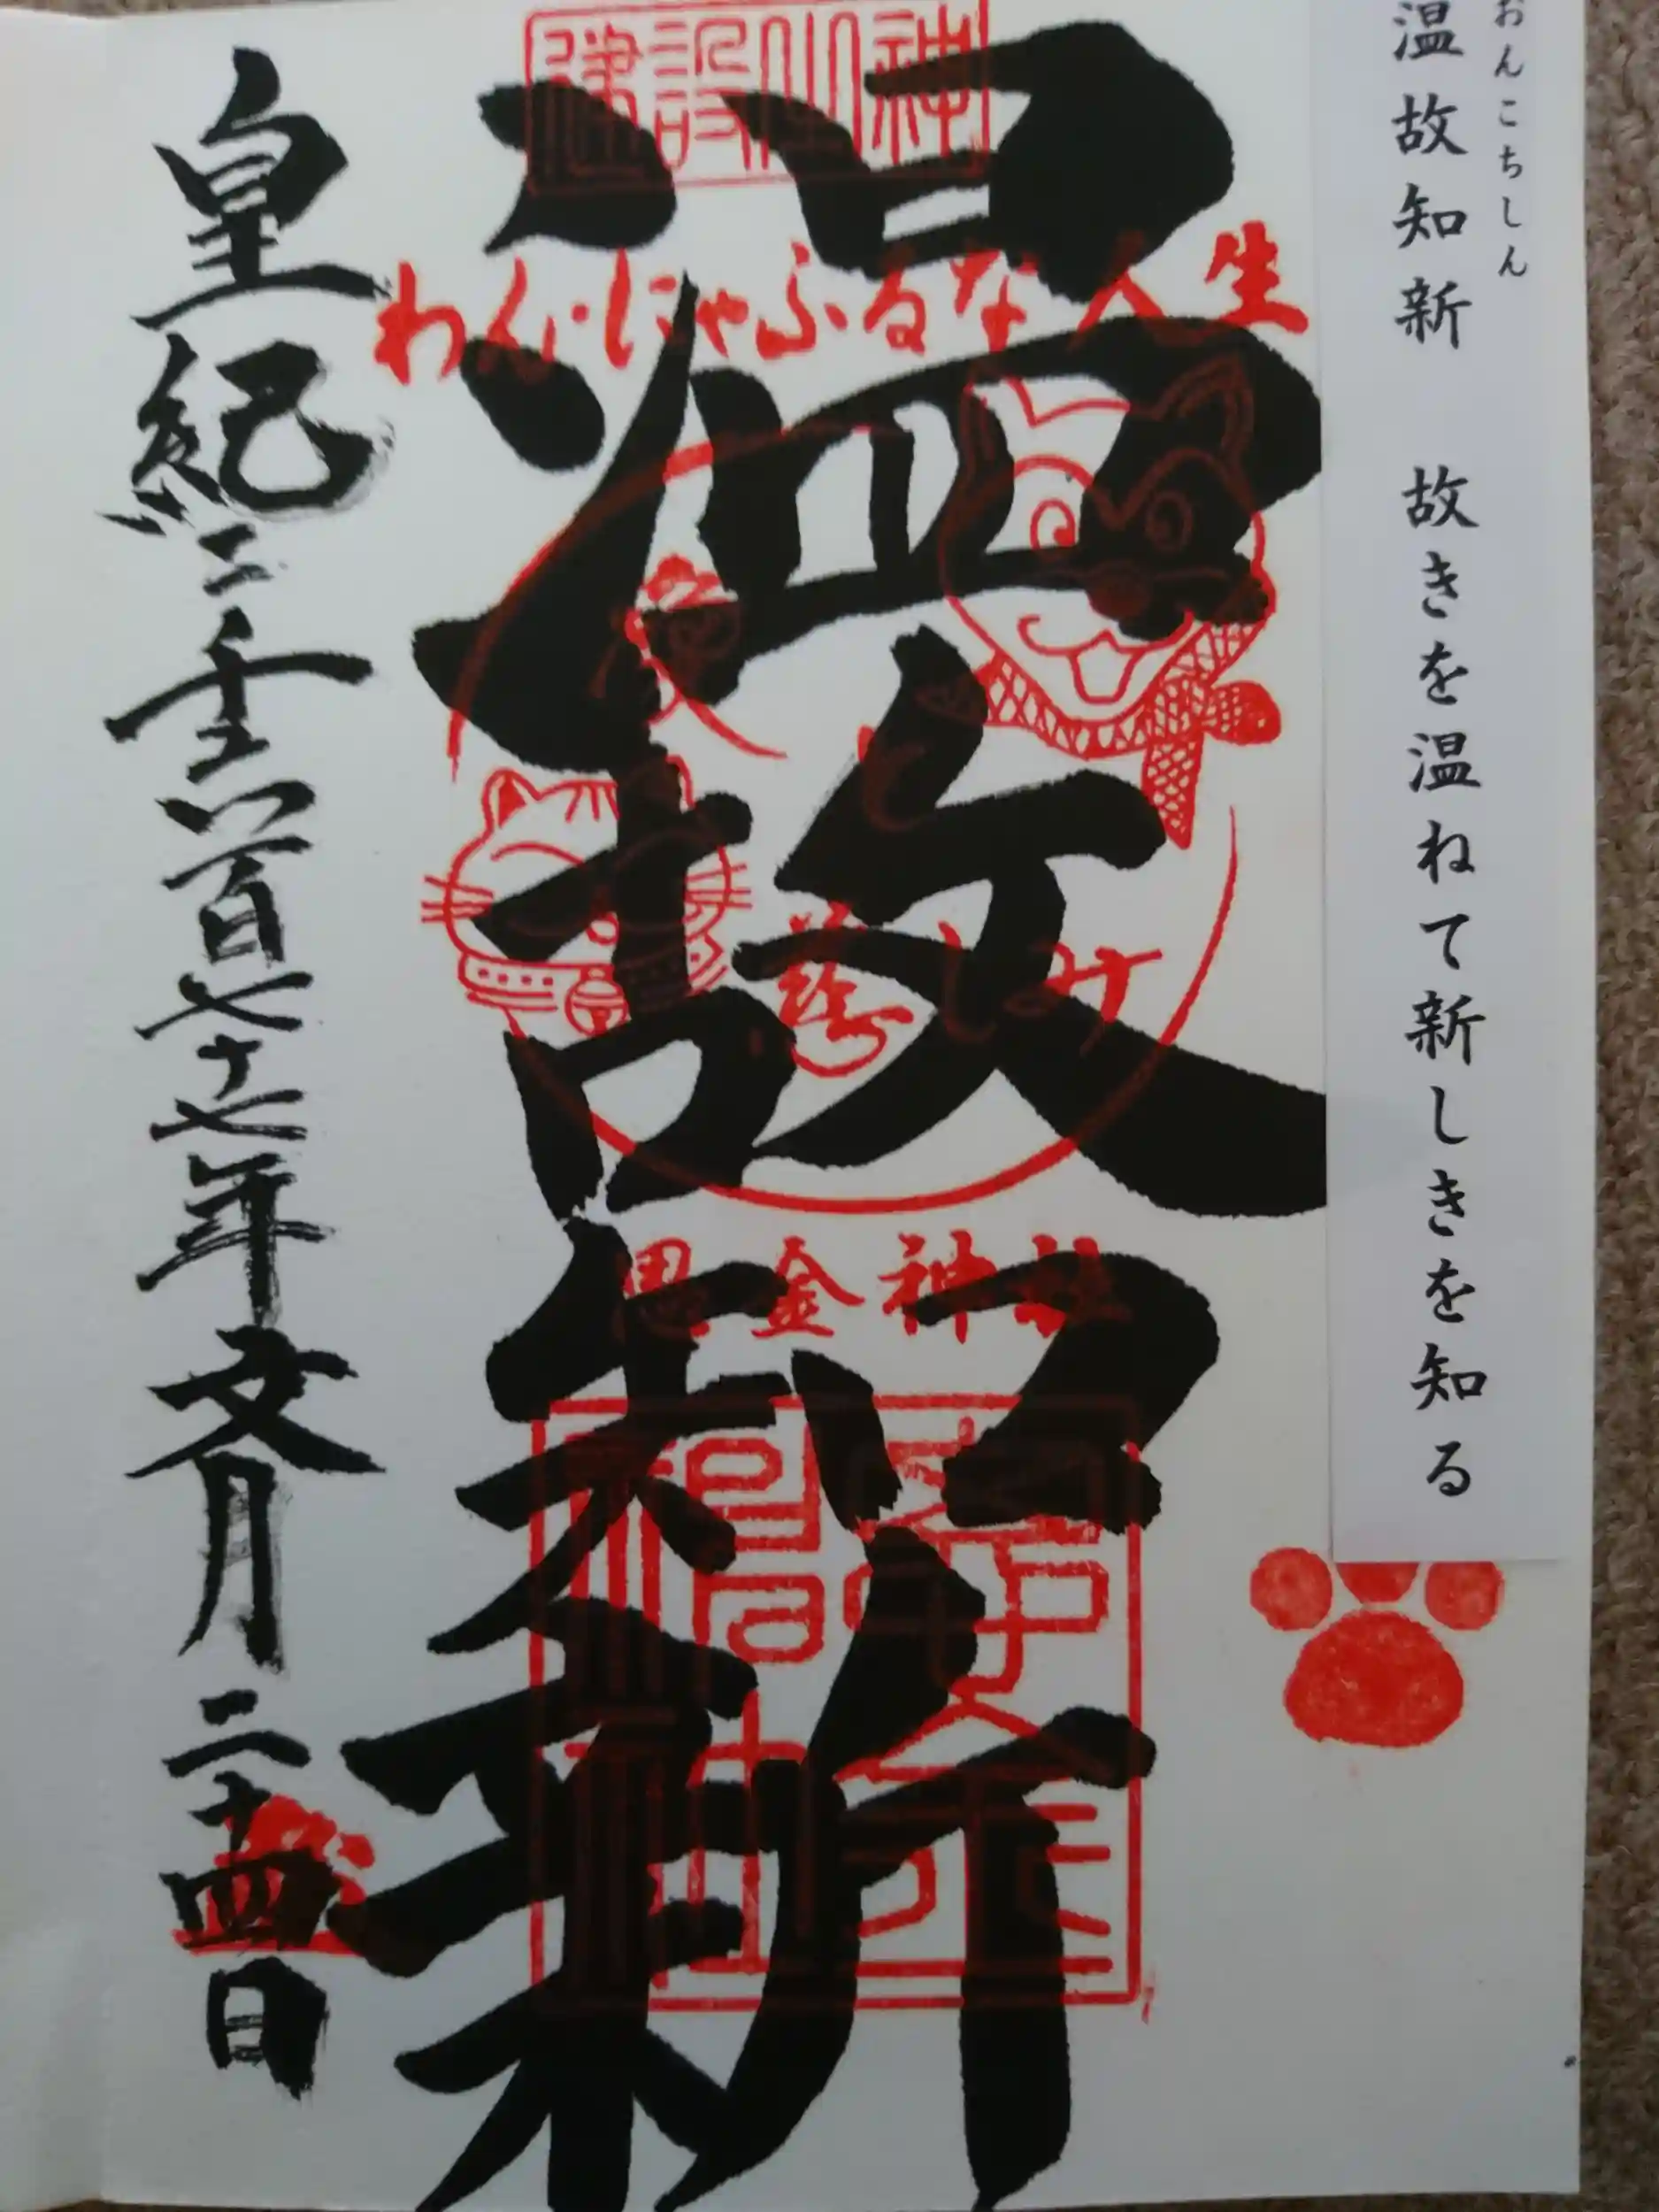 おんこちしん
温故知新　故きを温ねて新しきを知る
わん・にゃふるな人生
温故知新
思金神社
皇紀二千六百七十七年文月二十四日